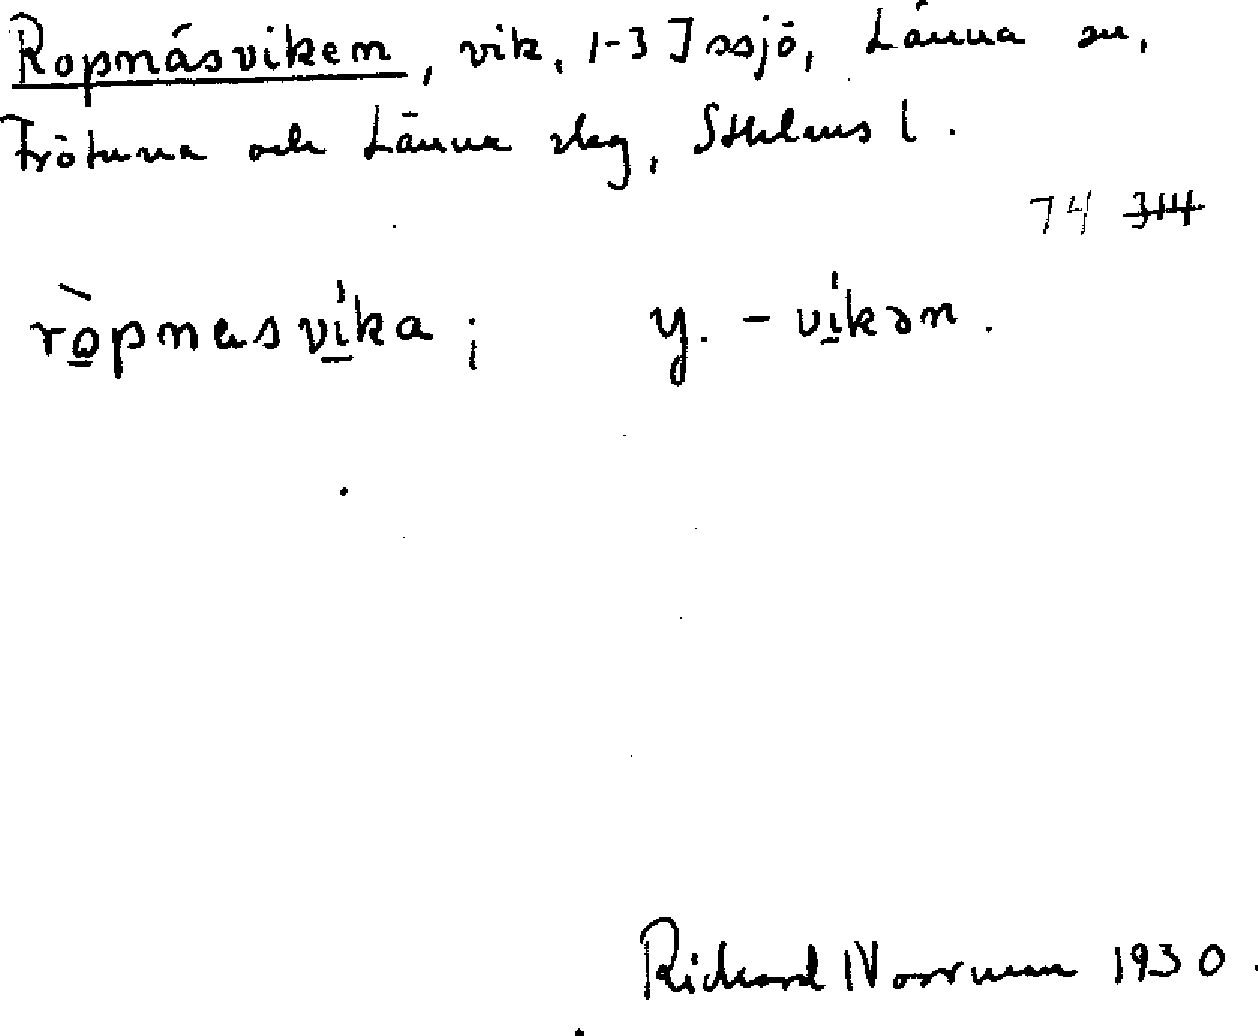 Ropnäsviken, vik, 1-3 Issjö, Länna sn,
Frötuna och Länna slag, Sthlms l.
74 314
rò̱pnasvi̱ka; y. -vi̱kən.
Richard Norrman 1930.